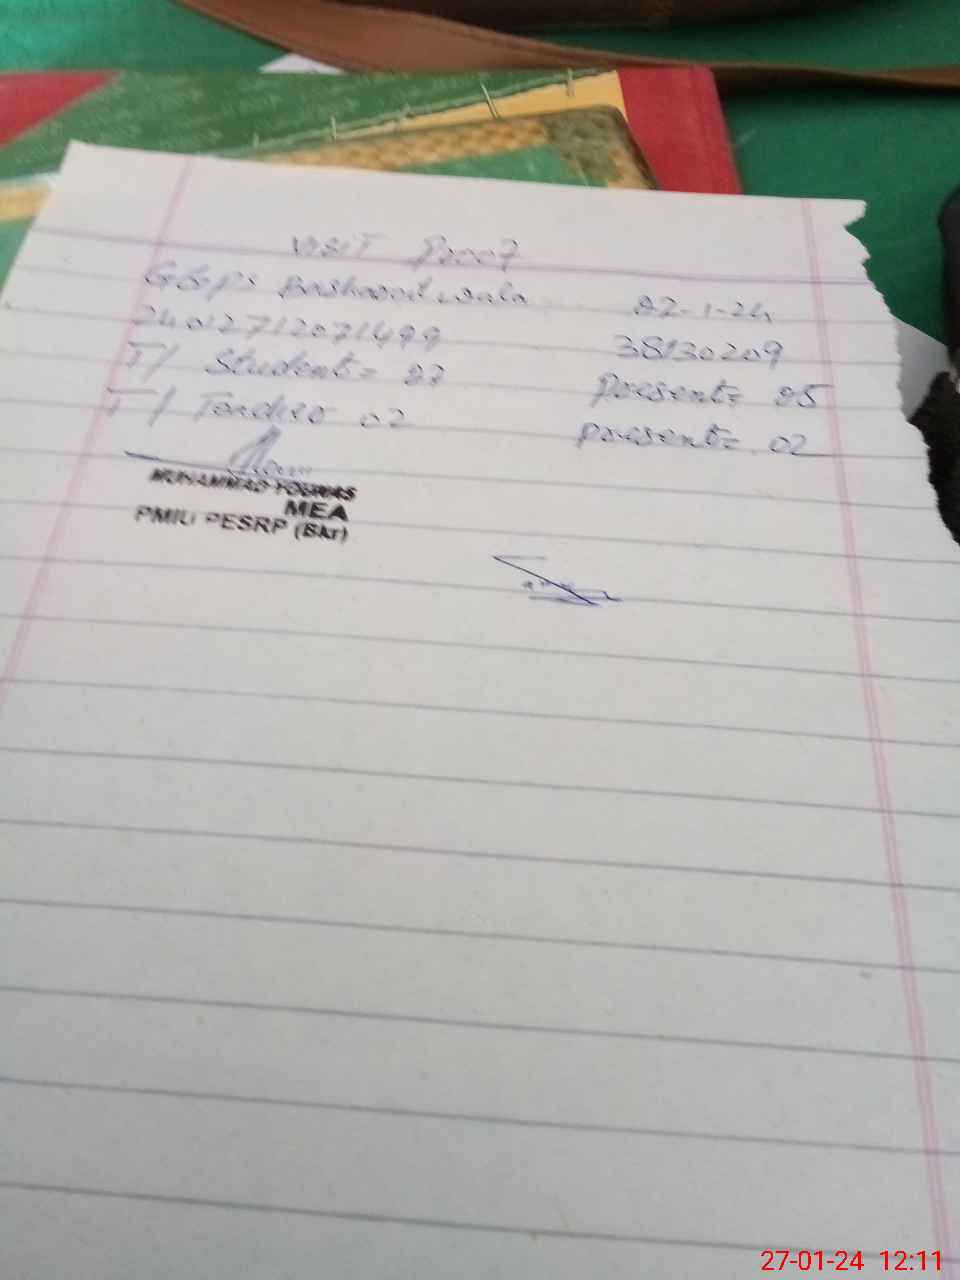 VISIT Proof
GGPS wala 27-1-24
24012712071499 38130209
T/ Student = 27 Present = 25
T/ Teacher 02 Present = 02
MUHAMMAD YOUNAS
MEA
PMIU PESRP (Bkr)
27-01-24 12:11